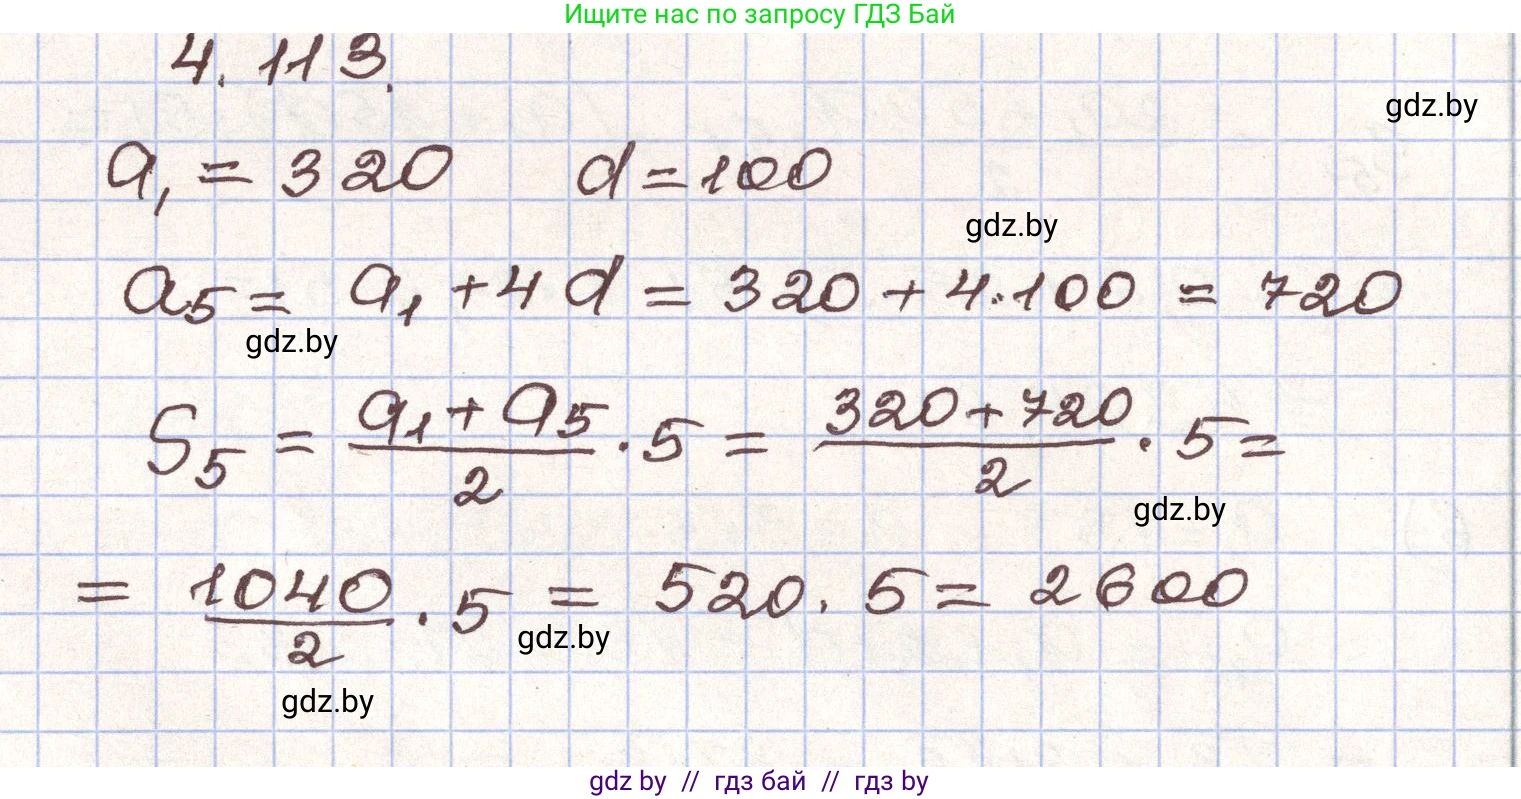 Ищите нас по запросу ГДЗ Бай
4.113.
gdz.by
a₁ = 320 d = 100
gdz.by
a₅ = a₁ + 4d = 320 + 4·100 = 720
gdz.by
S₅ = (a₁ + a₅)/2 · 5 = (320 + 720)/2 · 5 =
gdz.by
= 1040/2 · 5 = 520 · 5 = 2600
gdz.by
gdz.by
gdz by // гдз бай // гдз by